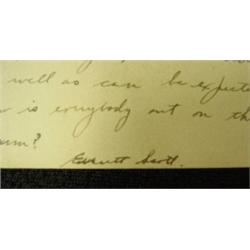 well as can be expecte
is everybody out on th
Everett Scott.